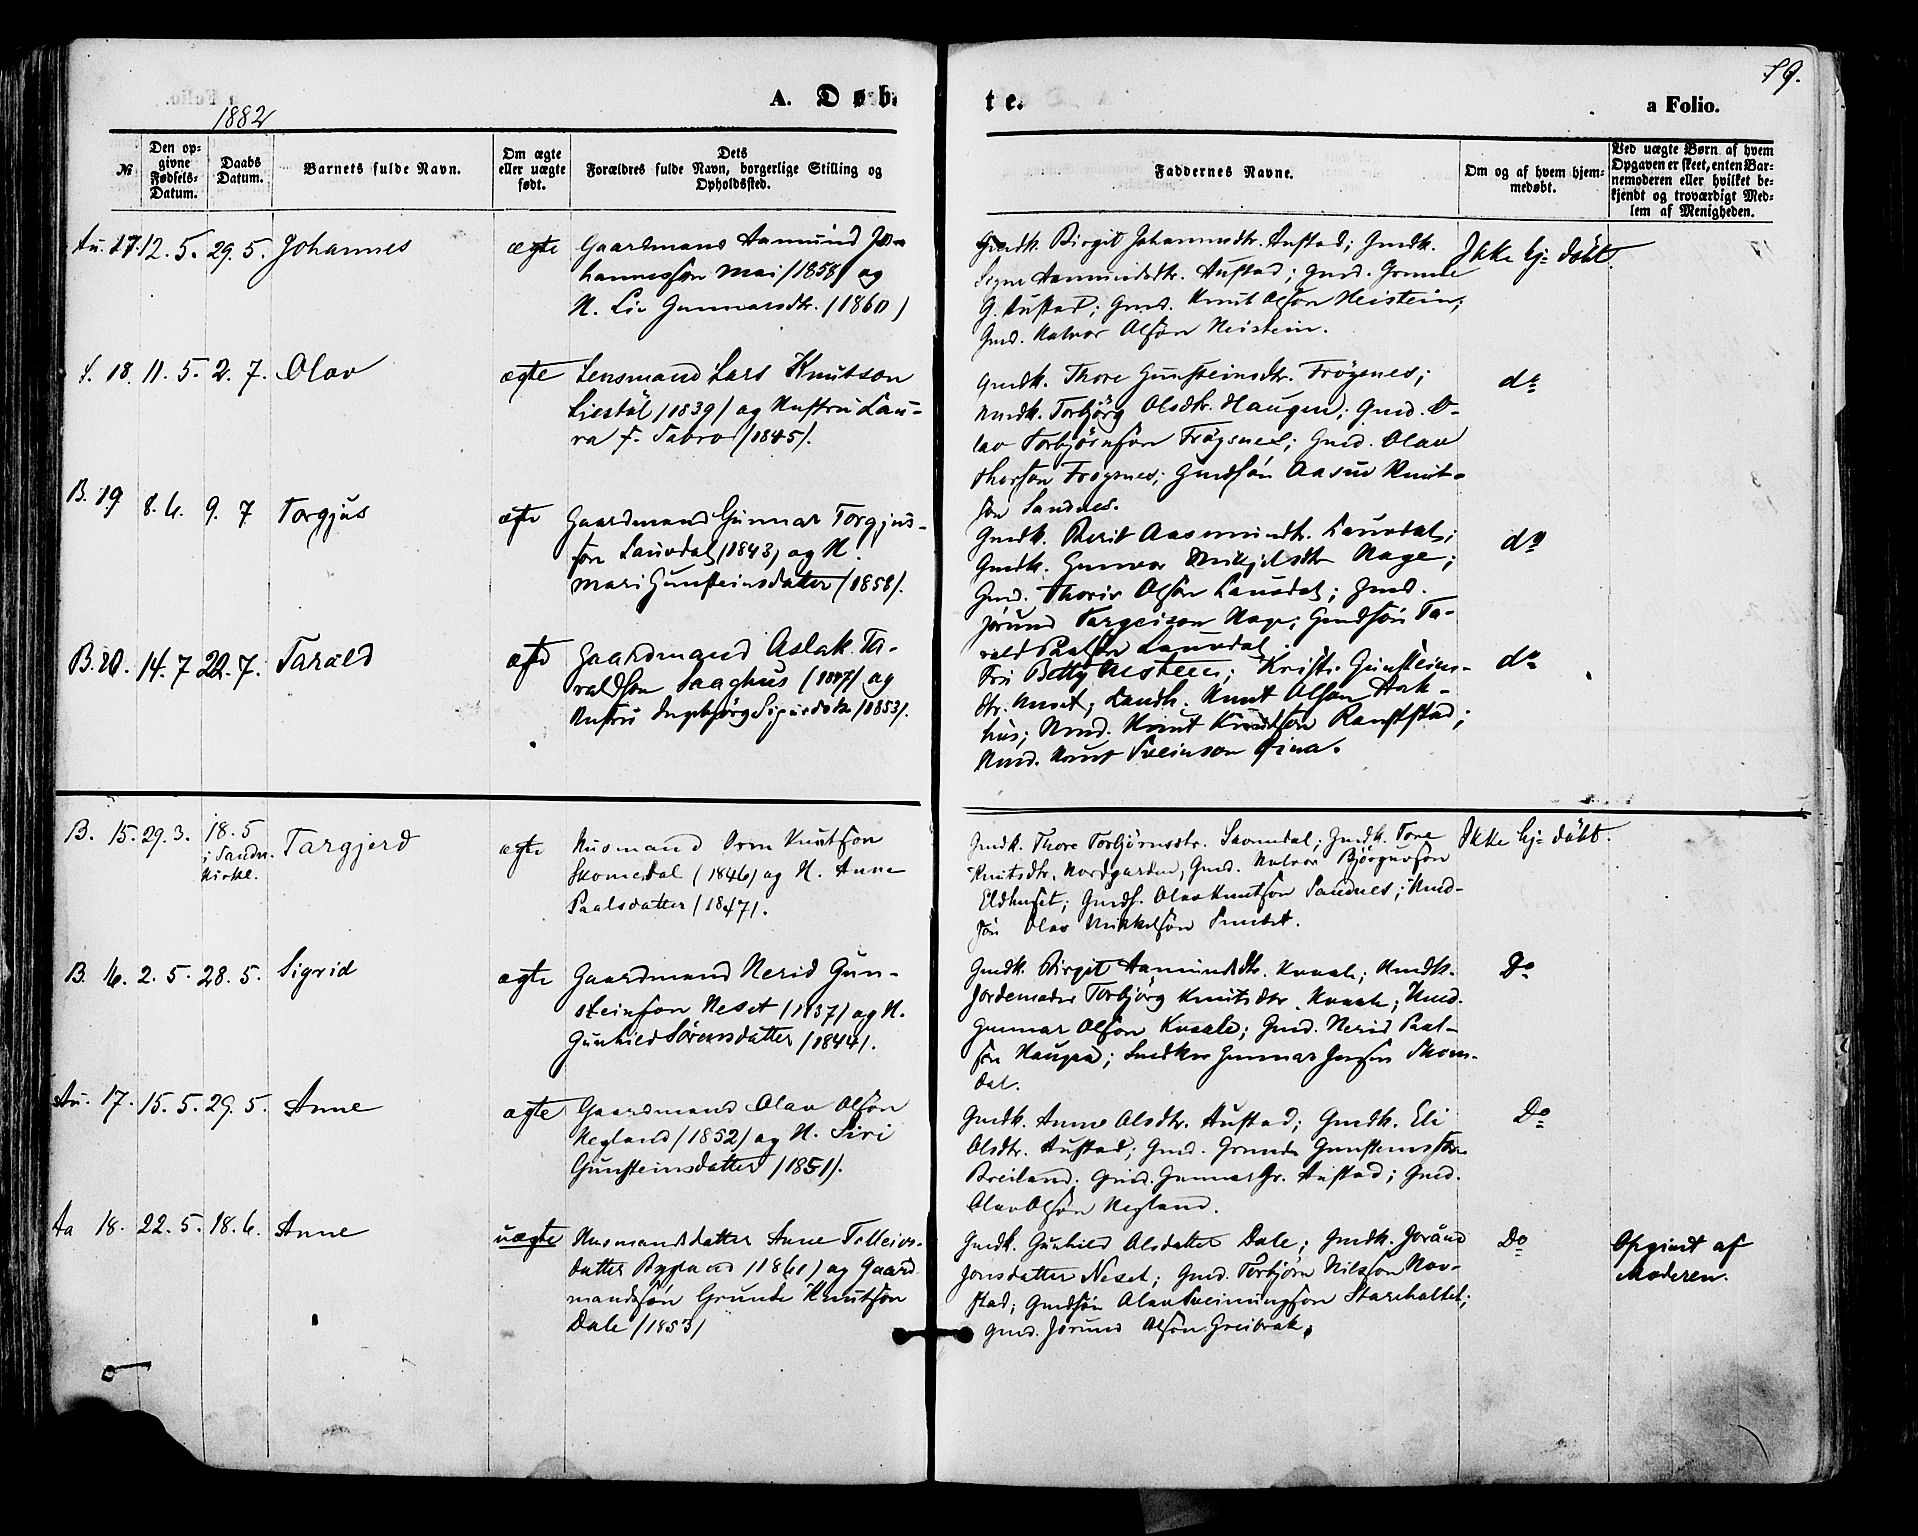 19.
1882
A. Døb-
te.
a Folio.
№
Den op-
givne
Fødsels-
Datum.
Daabs
Datum.
Barnets fulde Navn.
Om ægte
eller uægte
født.
Dets
Forældres fulde Navn, borgerlige Stilling og
Opholdssted.
Faddernes Navne.
Om og af hvem hjem-
medøbt.
Ved uægte Børn af hvem
Opgaven er skeet, enten Bar-
nemoderen eller hvilket be-
kjendt og troværdigt Med-
lem af Menigheden.
Au. 17 12. 5. 29. 5. Johannes ægte
Gaardmand Aamund Jo-
hannesson Moi (1858) og
H. Liv Gunnarsdtr. (1860)
Gmdk. Birgit Johannesdtr. Austad; Gmdk.
Signe Aamundsdtr. Austad; Gmd. Grunde
G. Austad; Gmd. Knut Olsøn Heistein;
Gmd. Halvor Olsøn Heistein.
Ikke hj-døbt.
S. 18. 11. 5. 2. 7. Olav ægte
Lensmand Lars Knutson
Liestøl (1839) og Hustru Lau-
ra f. Sabro (1845).
Gmdk. Thore Gunsteinsdtr. Frøysnes;
Hmdk. Torbjørg Olsdtr. Haugen; Gmd. O-
lav Torbjørnson Frøysnes; Gmd. Olav
Thorson Frøysnes; Gmdsøn Aasuv Knut-
søn Sandnes.
do
B. 19 8. 6. 9. 7 Torgjus ægte
Gaardmand Gunnar Torgjus-
søn Lauvdal (1843) og H.
Mari Gunsteinsdatter (1858).
Gmdk. Berit Aasmundtr. Lauvdal;
Gmdk. Gunvor Mikjelsdtr Hage;
Gmd. Thoriv Olsøn Lauvdal; Gmd.
Jørund Targeison Hage; Gmdsøn Ta-
rald Paalsøn Lauvdal.
do
B. 20. 14. 7 22. 7. Tarald ægte
Gaardmand Aslak Ta-
raldsøn Haaghus (1847) og
Hustru Ingebjørg Sigurdsdtr (1853).
Fru Betty Alsteen; Kristi Gunsteins-
dtr. Neset; Landh. Knut Olson Stok-
hus; Hmd. Knut Knudson Rauststad;
Hmd. Knut Sveinson Fina.
do
B. 15. 29. 3. 18. 5
i Sandn.
Kirke.
Targjerd ægte
Husmand Orm Knutsøn
Skomedal (1846) og H. Anne
Paalsdatter (1847).
Gmdk. Thore Torbjørnsdtr. Skomedal; Gmdk. Tore
Knutsdtr. Nordgarden; Gmd. Halvor Bjørgufsøn
Eldhuset; Gmds. Olav Knutsøn Sandnes; Hmd-
søn Olav Mikkelsøn
Ikke hj-døbt.
B. 16. 2. 5. 28. 5. Sigrid ægte
Gaardmand Nerid Gun-
steinsøn Neset (1837) og H.
Gunhild Sørensdatter (1844).
Gmdk. Birgit Aamundsdtr. Kvaale; Hmdk.
Jordemoder Torbjørg Knutsdtr. Kvaale; Hmd.
Gunnar Olsøn Kvaale; Gmd. Nerid Paal-
søn Haugaa; Snedker Gunnar Jenssøn Skom-
dal.
Do
Au. 17. 15. 5. 29. 5. Anne ægte
Gaardmand Olav Olsøn
Hegland (1852) og H. Siri
Gunsteinsdatter (1851).
Gmdk. Anne Olsdtr. Austad; Gmdk. Eli
Olsdtr. Austad; Gmd. Grunde Gunsteinssøn
Breiland. Gmd. Gunnar Gr. Austad; Gmd.
Olav Olsøn Hegland.
Do
Aa 18. 22. 5. 18. 6. Anne uægte
Husmandsdatter Anne Tolleivs-
datter Bygland (1861) og Gaard
mandssøn Grunde Knutsøn
Dale (1853)
Gmdk. Gunhild Olsdatter Dale; Gmdk. Jorånd
Jonsdatter Neset; Gmd. Torbjørn Nilssøn Nor-
stad; Gmdsøn Olav Sveinungsøn Stareholtet;
Gmd. Jørund Olsøn Greibrok.
Do
Opgivet af
Moderen.